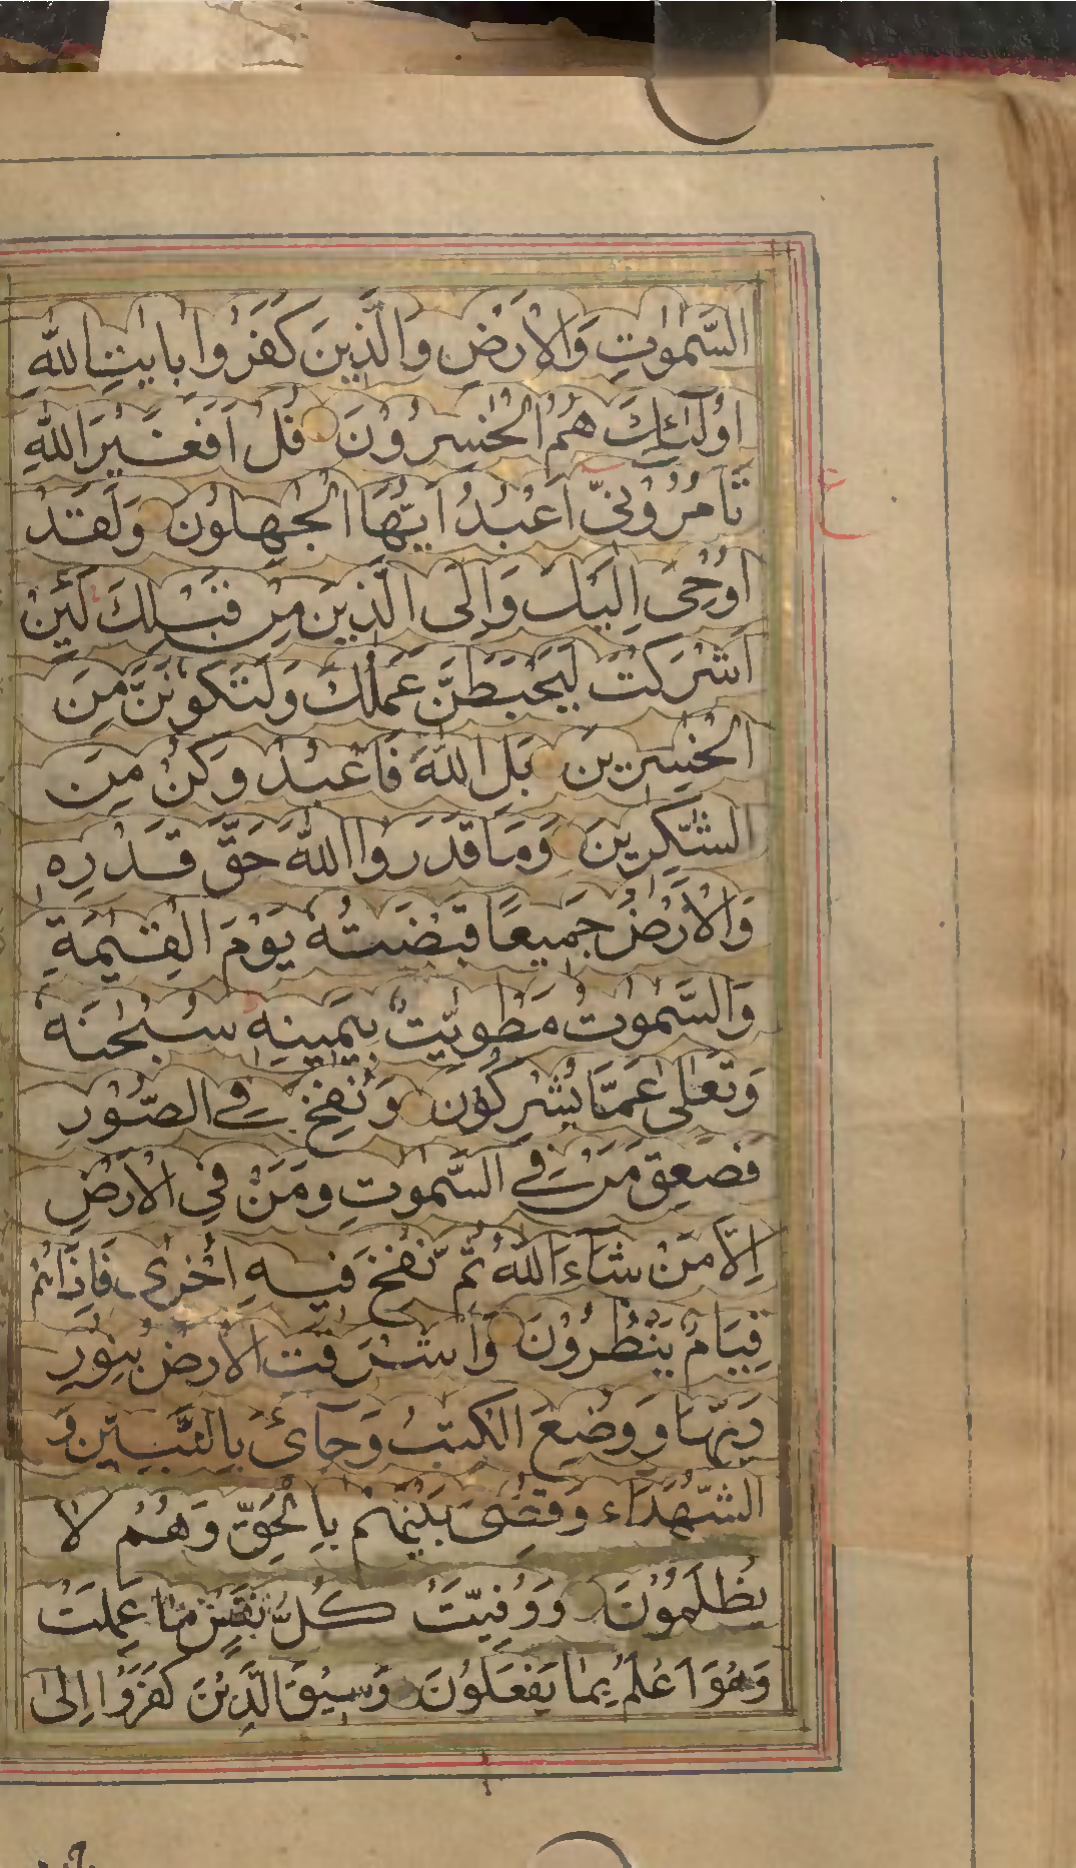 السَّمٰوٰتِ وَالْاَرْضِ وَالَّذِينَ كَفَرُوا بِاٰيٰتِ اللّٰهِ
اُولٰٓئِكَ هُمُ الْخٰسِرُوْنَ قُلْ اَفَغَيْرَ اللّٰهِ
تَاْمُرُوْٓنِّىْٓ اَعْبُدُ اَيُّهَا الْجٰهِلُوْنَ وَلَقَدْ
اُوْحِىَ اِلَيْكَ وَاِلَى الَّذِيْنَ مِنْ قَبْلِكَ لَئِنْ
اَشْرَكْتَ لَيَحْبَطَنَّ عَمَلُكَ وَلَتَكُوْنَنَّ مِنَ
الْخٰسِرِيْنَ بَلِ اللّٰهَ فَاعْبُدْ وَكُنْ مِنَ
الشّٰكِرِيْنَ وَمَا قَدَرُوا اللّٰهَ حَقَّ قَدْرِهٖ
وَالْاَرْضُ جَمِيْعًا قَبْضَتُهٗ يَوْمَ الْقِيٰمَةِ
وَالسَّمٰوٰتُ مَطْوِيّٰتٌ بِيَمِيْنِهٖ سُبْحٰنَهٗ
وَتَعٰلٰى عَمَّا يُشْرِكُوْنَ وَنُفِخَ فِى الصُّوْرِ
فَصَعِقَ مَنْ فِى السَّمٰوٰتِ وَمَنْ فِى الْاَرْضِ
اِلَّا مَنْ شَآءَ اللّٰهُ ثُمَّ نُفِخَ فِيْهِ اُخْرٰى فَاِذَا هُمْ
قِيَامٌ يَنْظُرُوْنَ وَاَشْرَقَتِ الْاَرْضُ بِنُوْرِ
رَبِّهَا وَوُضِعَ الْكِتٰبُ وَجِآىْءَ بِالنَّبِيّٖنَ وَ
الشُّهَدَآءِ وَقُضِىَ بَيْنَهُمْ بِالْحَقِّ وَهُمْ لَا
يُظْلَمُوْنَ وَوُفِّيَتْ كُلُّ نَفْسٍ مَا عَمِلَتْ
وَهُوَ اَعْلَمُ بِمَا يَفْعَلُوْنَ وَسِيْقَ الَّذِيْنَ كَفَرُوْٓا اِلٰى
ع